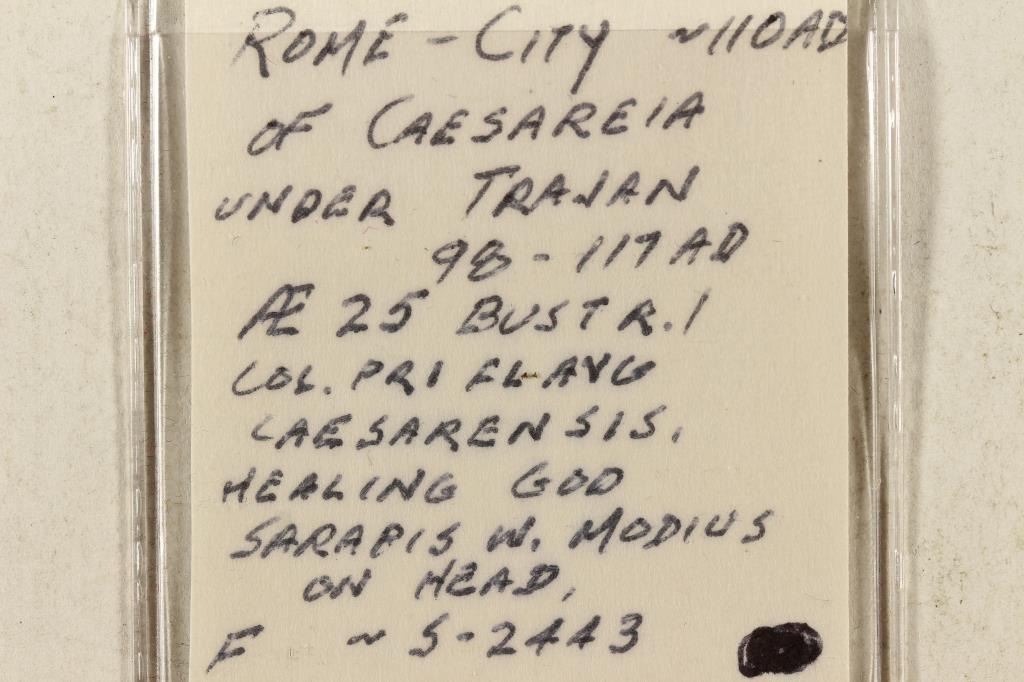 ROME - CITY ~110AD
OF CAESAREIA
UNDER TRAJAN
98-117AD
Æ 25 BUST R. /
COL. PRI FL AVG
CAESARENSIS.
HEALING GOD
SARAPIS W. MODIUS
ON HEAD,
F ~ S-2443